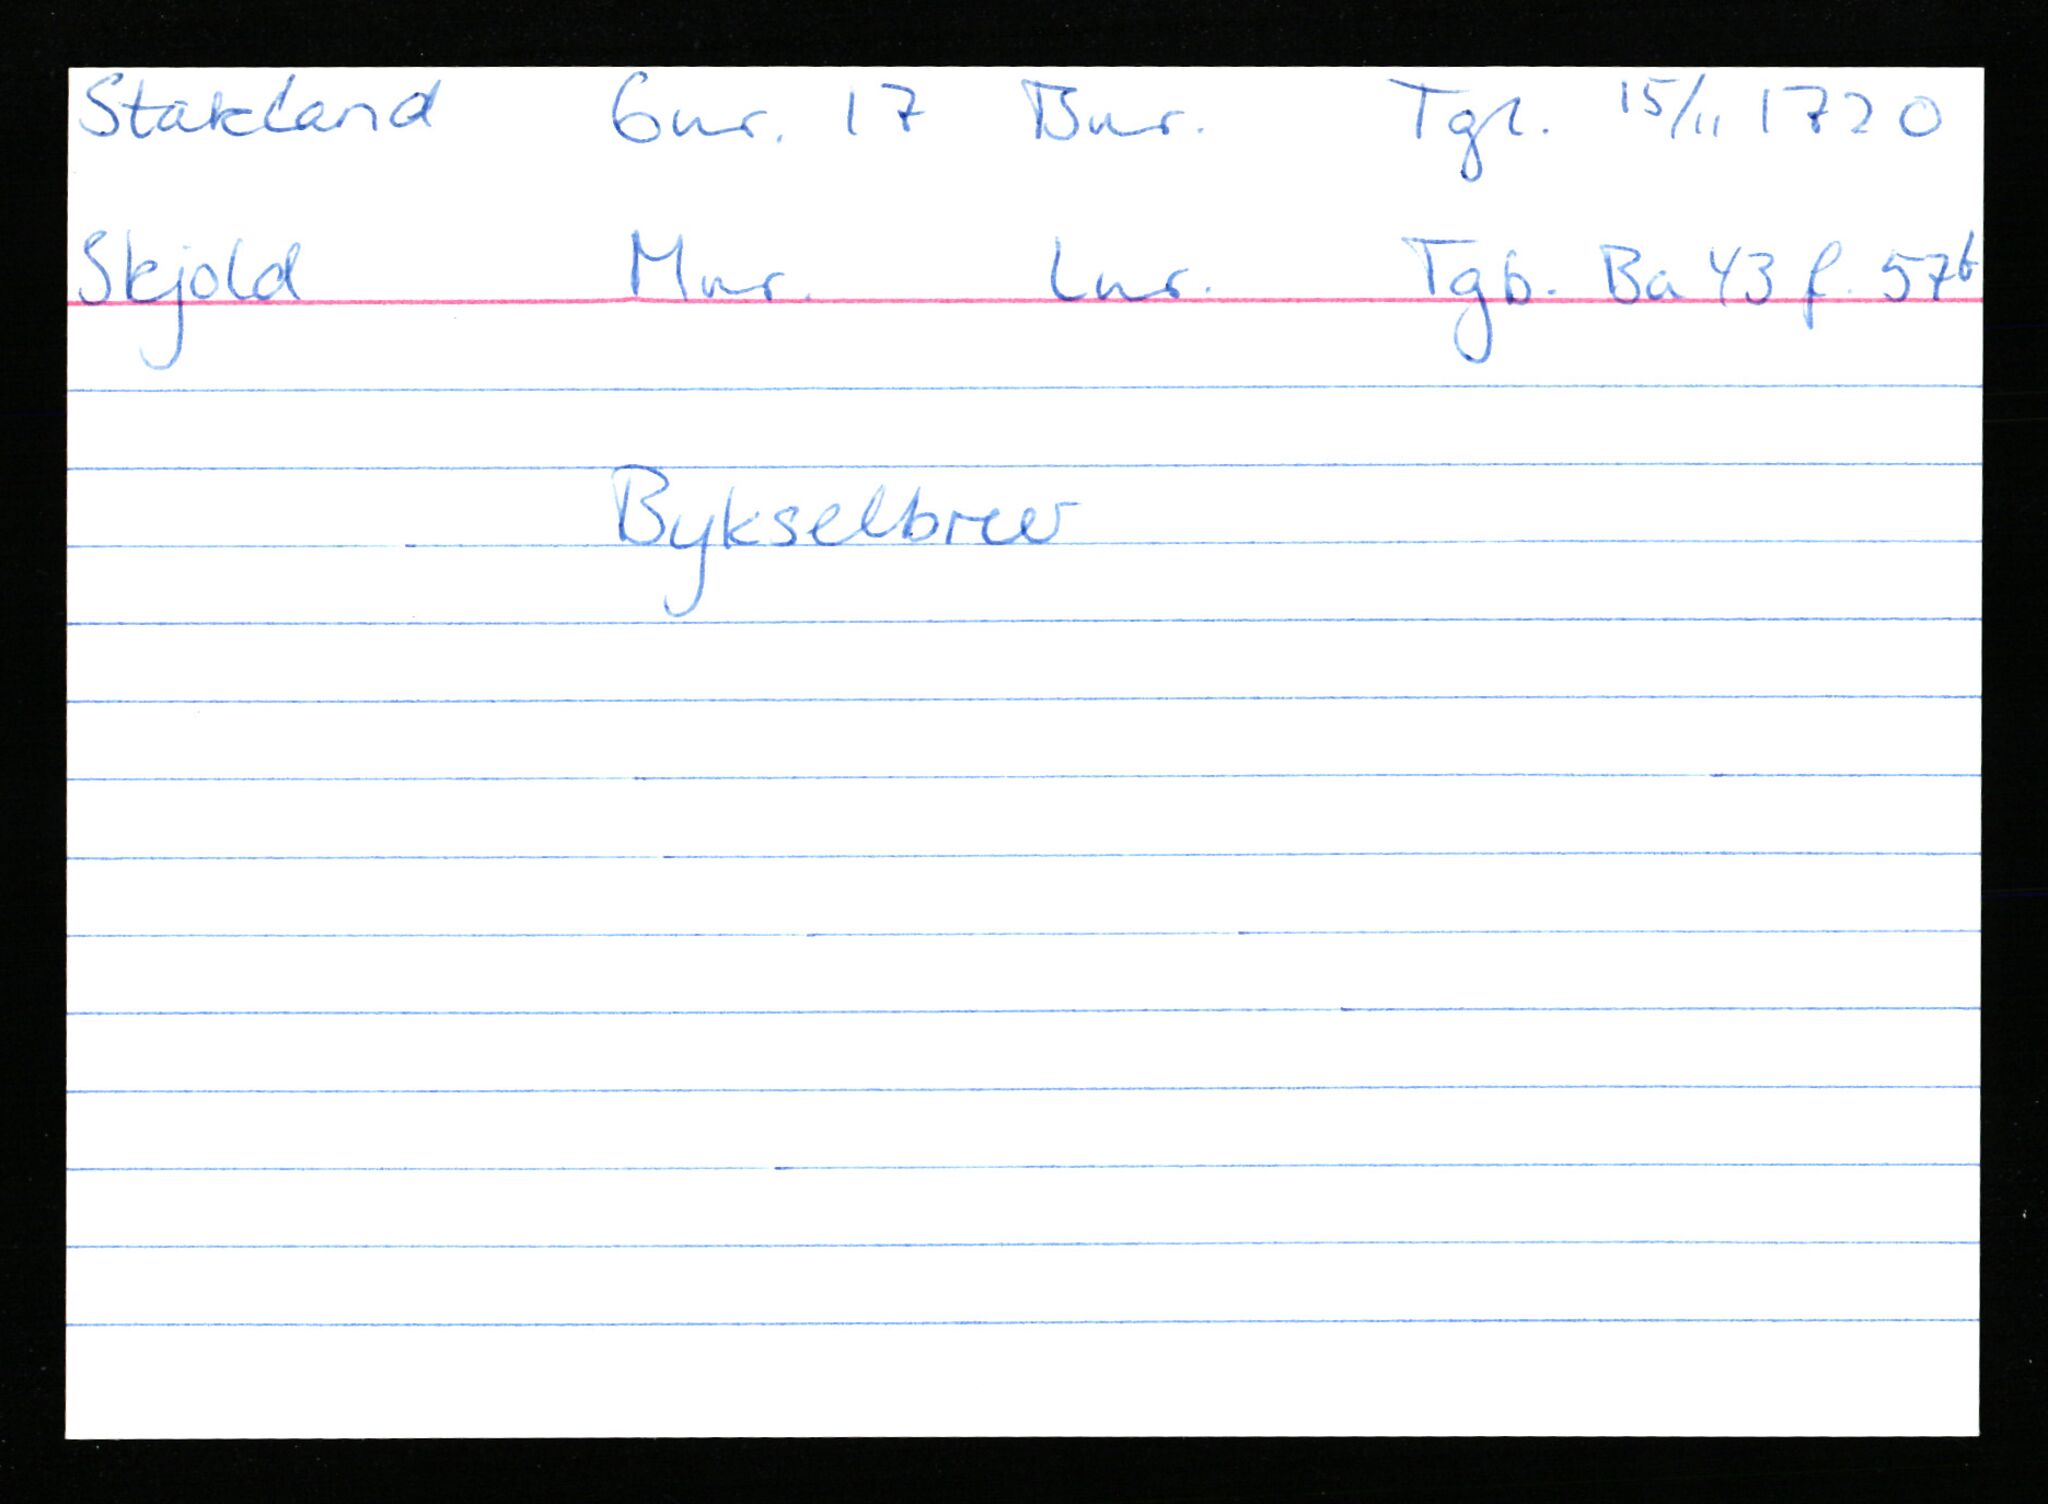 Stakland Gnr. 17 Bnr. Tgl. 15/11 1720
Skjold Mnr. Lnr. Tgb. Ba 43 f. 57b
Bykselbrev